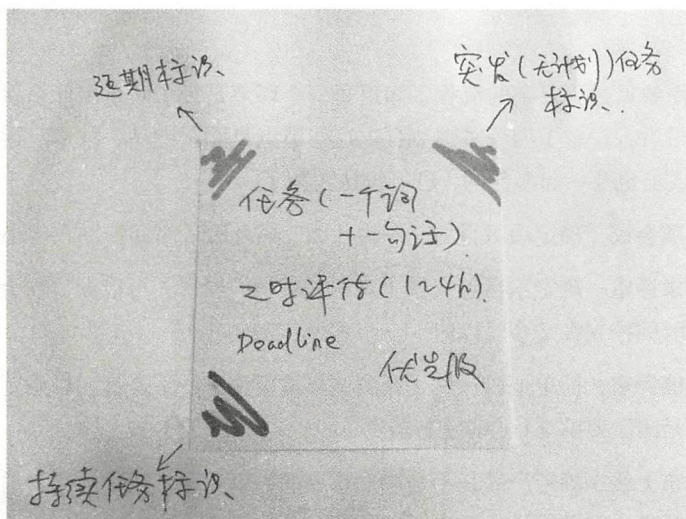 延期标识
突发(无计划)任务
标识
任务(一个词
+一句话)
工时评估(1~4h)
Deadline
优先级
持续任务标识